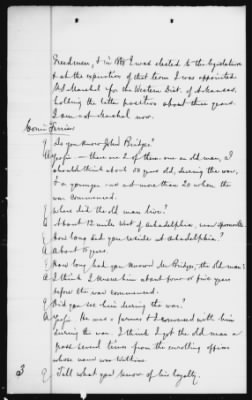 Freedmen, & in 187 I was elected to the legislature
& at the expiration of that term I was appointed
U.S. Marshal for the Western Dist. of Arkansas,
holding the latter position about three years.
I am not Marshal now.
Q Do you know John Bridges?
A Yes sir — there are 2 of them one an old man, I
should think about 50 years old, during the war,
& a younger not more than 20 when the
war commenced.
Q Where did the old man live?
A About 12 miles West of Arkadelphia, near
Q How long did you reside at Arkadelphia?
A About 15 years.
Q How long had you known Mr. Bridges, the old man?
A I think I knew him about four or five years
before the war commenced.
Q Did you see him during the war?
A Yes sir. He was a farmer & I conversed with him
during the war. I think I got the old man a
pass several times from the enrolling officer
whose name was Withers.
Q Tell what you know of his loyalty.
3